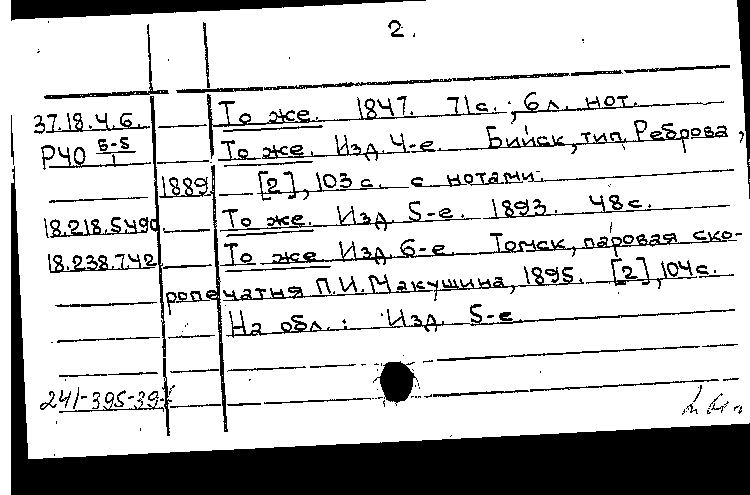 2.
37.18.4.6. То же. 1847. 71с.; 6л. нот.
Р40 5-5/1 То же. Изд. 4-е. Бийск, тип. Реброва,
1889. [2], 103с. с нотами.
18.218.5490 То же. Изд. 5-е. 1893. 48с.
18.238.742 То же Изд. 6-е. Томск, паровая ско-
ропечатня П.И.Макушина, 1895. [2], 104с.
На обл.: Изд. 5-е.
241-395-39